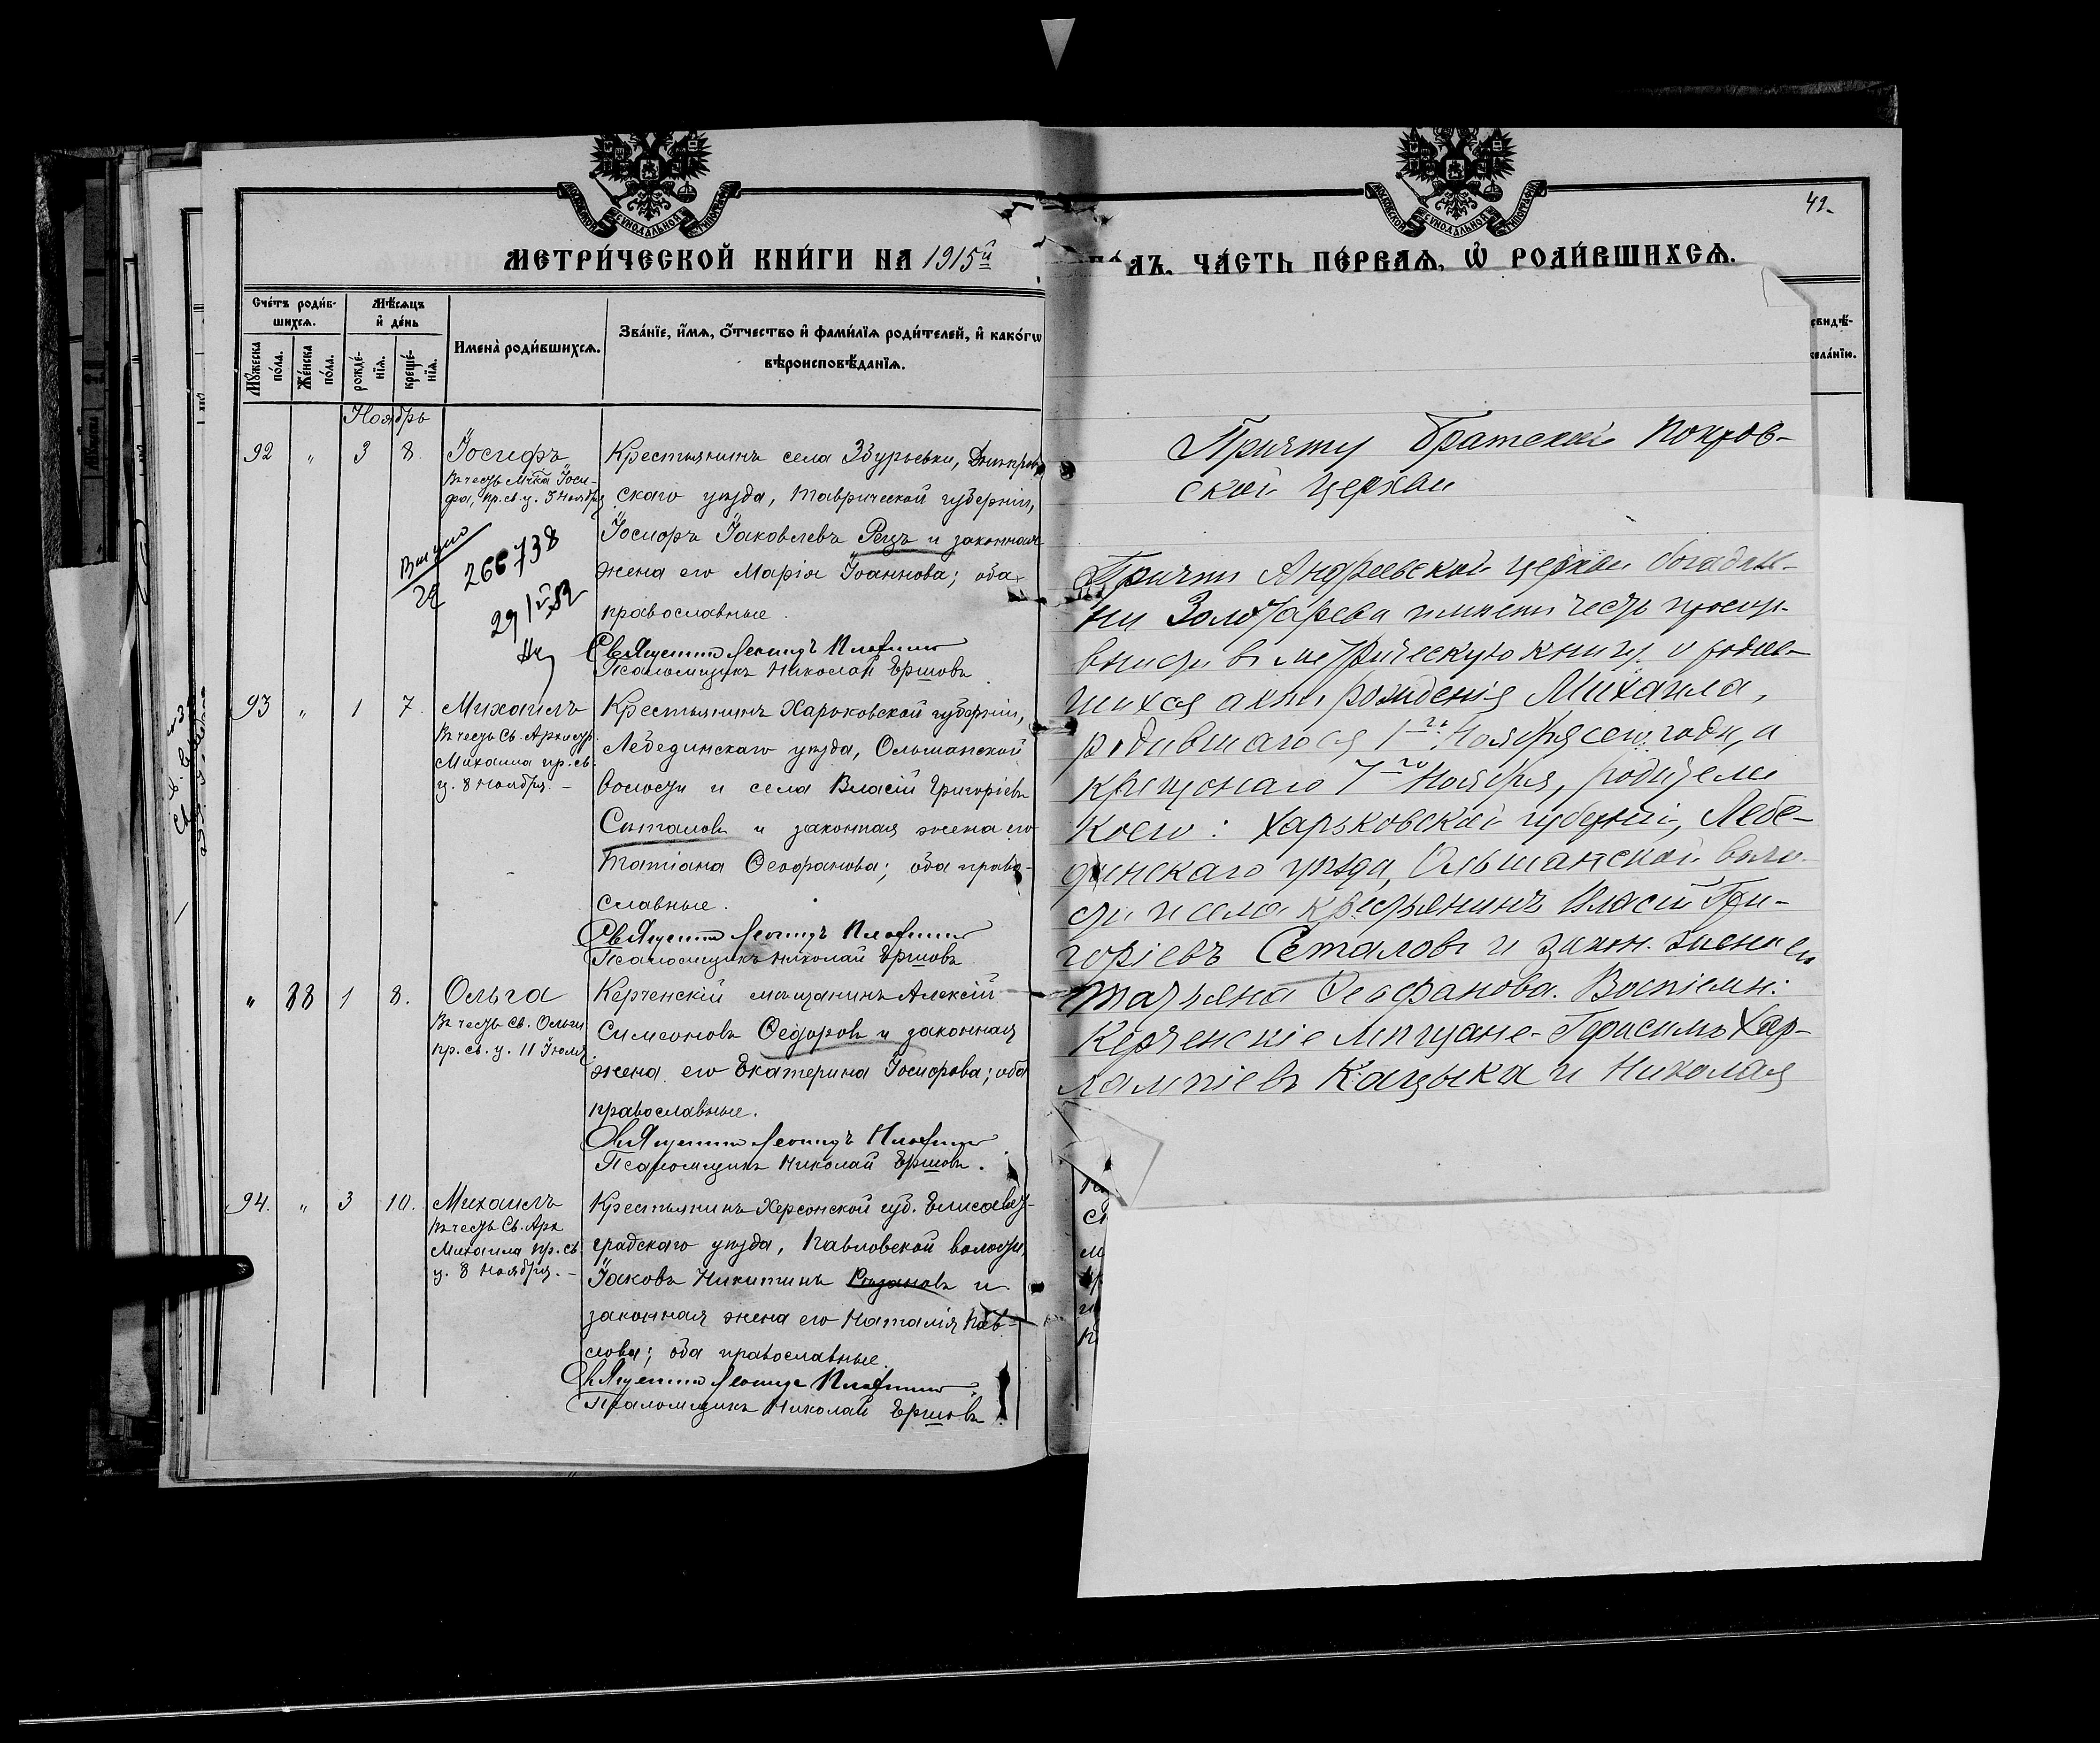 МЕТРИ́ЧЕСКОЙ КНИ́ГИ НА 1915й
Сче́тъ роди́в-
шихсѧ.
Мѣ́сѧцъ
и҆ де́нь
Мꙋ́жеска
по́ла.
Же́нска
по́ла.
рожде́-
нїѧ.
креще́-
нїѧ.
Имена̀ роди́вшихсѧ.
Зва́нїе, и҆́мѧ, ѻ҆́тчество и҆ фами́лїѧ роди́телей, и҆ како́гѡ
вѣроисповѣ́данїѧ.
Ноябрь
92 " 3 8.
Іосифъ
Въ честь Мч-ка Іоси-
фа, пр. св. ц. 3 Ноября
266738
Крестьянинъ села Збурьевки, Днѣпров-
скаго уѣзда, Таврической губерніи,
Іосифъ Іаковлевъ Рецъ и законная
жена его Марія Іоаннова; оба
православные.
Священникъ Леонидъ
Псаломщикъ Николай Ершовъ
93 " 1 7.
Михаилъ
Въ честь Св. Архистр.
Михаила пр. св.
ц. 8 Ноября. –
Крестьянинъ Харьковской губерніи,
Лебединскаго уѣзда, Ольшанской
волости и села Власій Григоріевъ
Сѣталовъ и законная жена его
Татіана Ѳеофанова; оба право-
славные.
Священникъ Леонидъ
Псаломщикъ Николай Ершовъ
" 88 1 8.
Ольга
Въ честь Св. Ольги
пр. св. ц. 11 Іюля.
Керченскій мѣщанинъ Алексій
Симеоновъ Ѳедоровъ и законная
жена его Екатерина Іосифова; оба
православные.
Священникъ Леонидъ
Псаломщикъ Николай Ершовъ.
94. " 3 10.
Михаилъ
Въ честь Св. Арх.
Михаила пр. св.
ц. 8 Ноября. –
Крестьянинъ Херсонской губ. Елисавет-
градскаго уѣзда, Павловской волости,
Іаковъ Никитинъ и
законная жена его Наталія Пав-
лова; оба православные.
Священникъ Леонидъ
Псаломщикъ Николай Ершовъ
42.
ЛЪ, ЧА́СТЬ ПЕ́РВАѦ, Ѡ҆ РОДИ́ВШИХСѦ.
свидѣ́-
жела́нїю.
Причту Братской Покров-
ской церкви
Причтъ Андреевской церкви богадѣль-
ни Золотарева имѣетъ честь просить
внести въ метрическую книгу о родив-
шихся актъ рожденія Михаила,
родившагося 1го Ноября сего года, и
крещенаго 7го Ноября, родители
коего: Харьковской губерніи, Лебе-
динскаго уѣзда, Ольшанской воло-
сти и села крестьянинъ Власій Гри-
горіевъ Сеталовъ и закон. жена его
Татьяна Ѳеофанова. Воспріемн:
Керченскіе мѣщане – Герасимъ Хар-
лампіевъ Кацыка и Николая